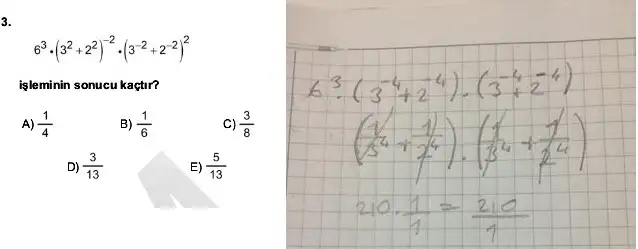 3.
6³ · (3² + 2²)⁻² · (3⁻² + 2⁻²)²
işleminin sonucu kaçtır?
A) 1/4 B) 1/6 C) 3/8
D) 3/13 E) 5/13
6³ · (3⁻⁴ + 2⁻⁴) · (3⁻⁴ + 2⁻⁴)
(1/3⁴ + 1/2⁴) · (1/3⁴ + 1/2⁴)
210 · 1/1 = 210/1